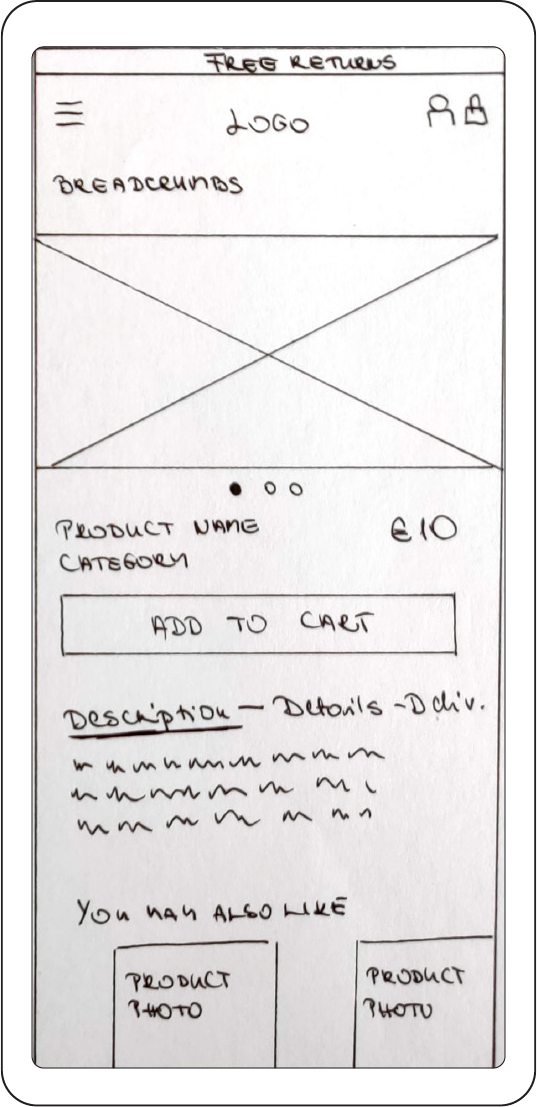 FREE RETURNS
LOGO
BREADCRUMBS
PRODUCT NAME
€10
CATEGORY
ADD TO CART
Description - Details - Deliv.
YOU MAY ALSO LIKE
PRODUCT
PHOTO
PRODUCT
PHOTO